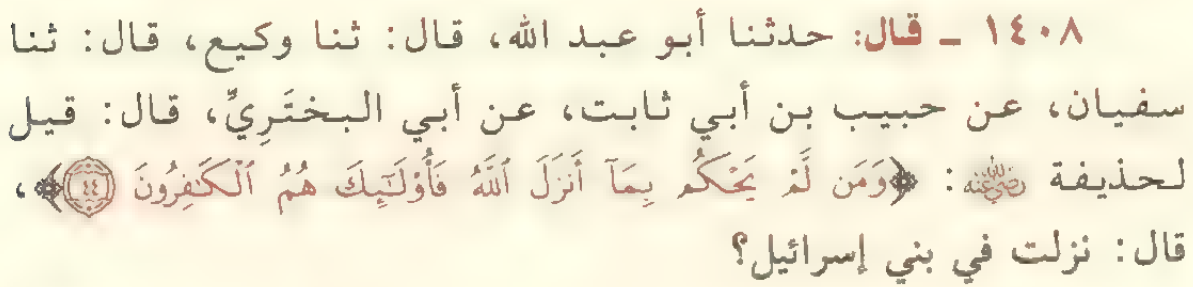 ١٤٠٨ ـ قال: حدثنا أبو عبد الله، قال: ثنا وكيع، قال: ثنا
سفيان، عن حبيب بن أبي ثابت، عن أبي البختَرِيِّ، قال: قيل
لحذيفة رضي الله عنه: ﴿وَمَن لَّمْ يَحْكُم بِمَآ أَنزَلَ ٱللَّهُ فَأُوْلَٰٓئِكَ هُمُ ٱلْكَٰفِرُونَ ٤٤﴾،
قال: نزلت في بني إسرائيل؟